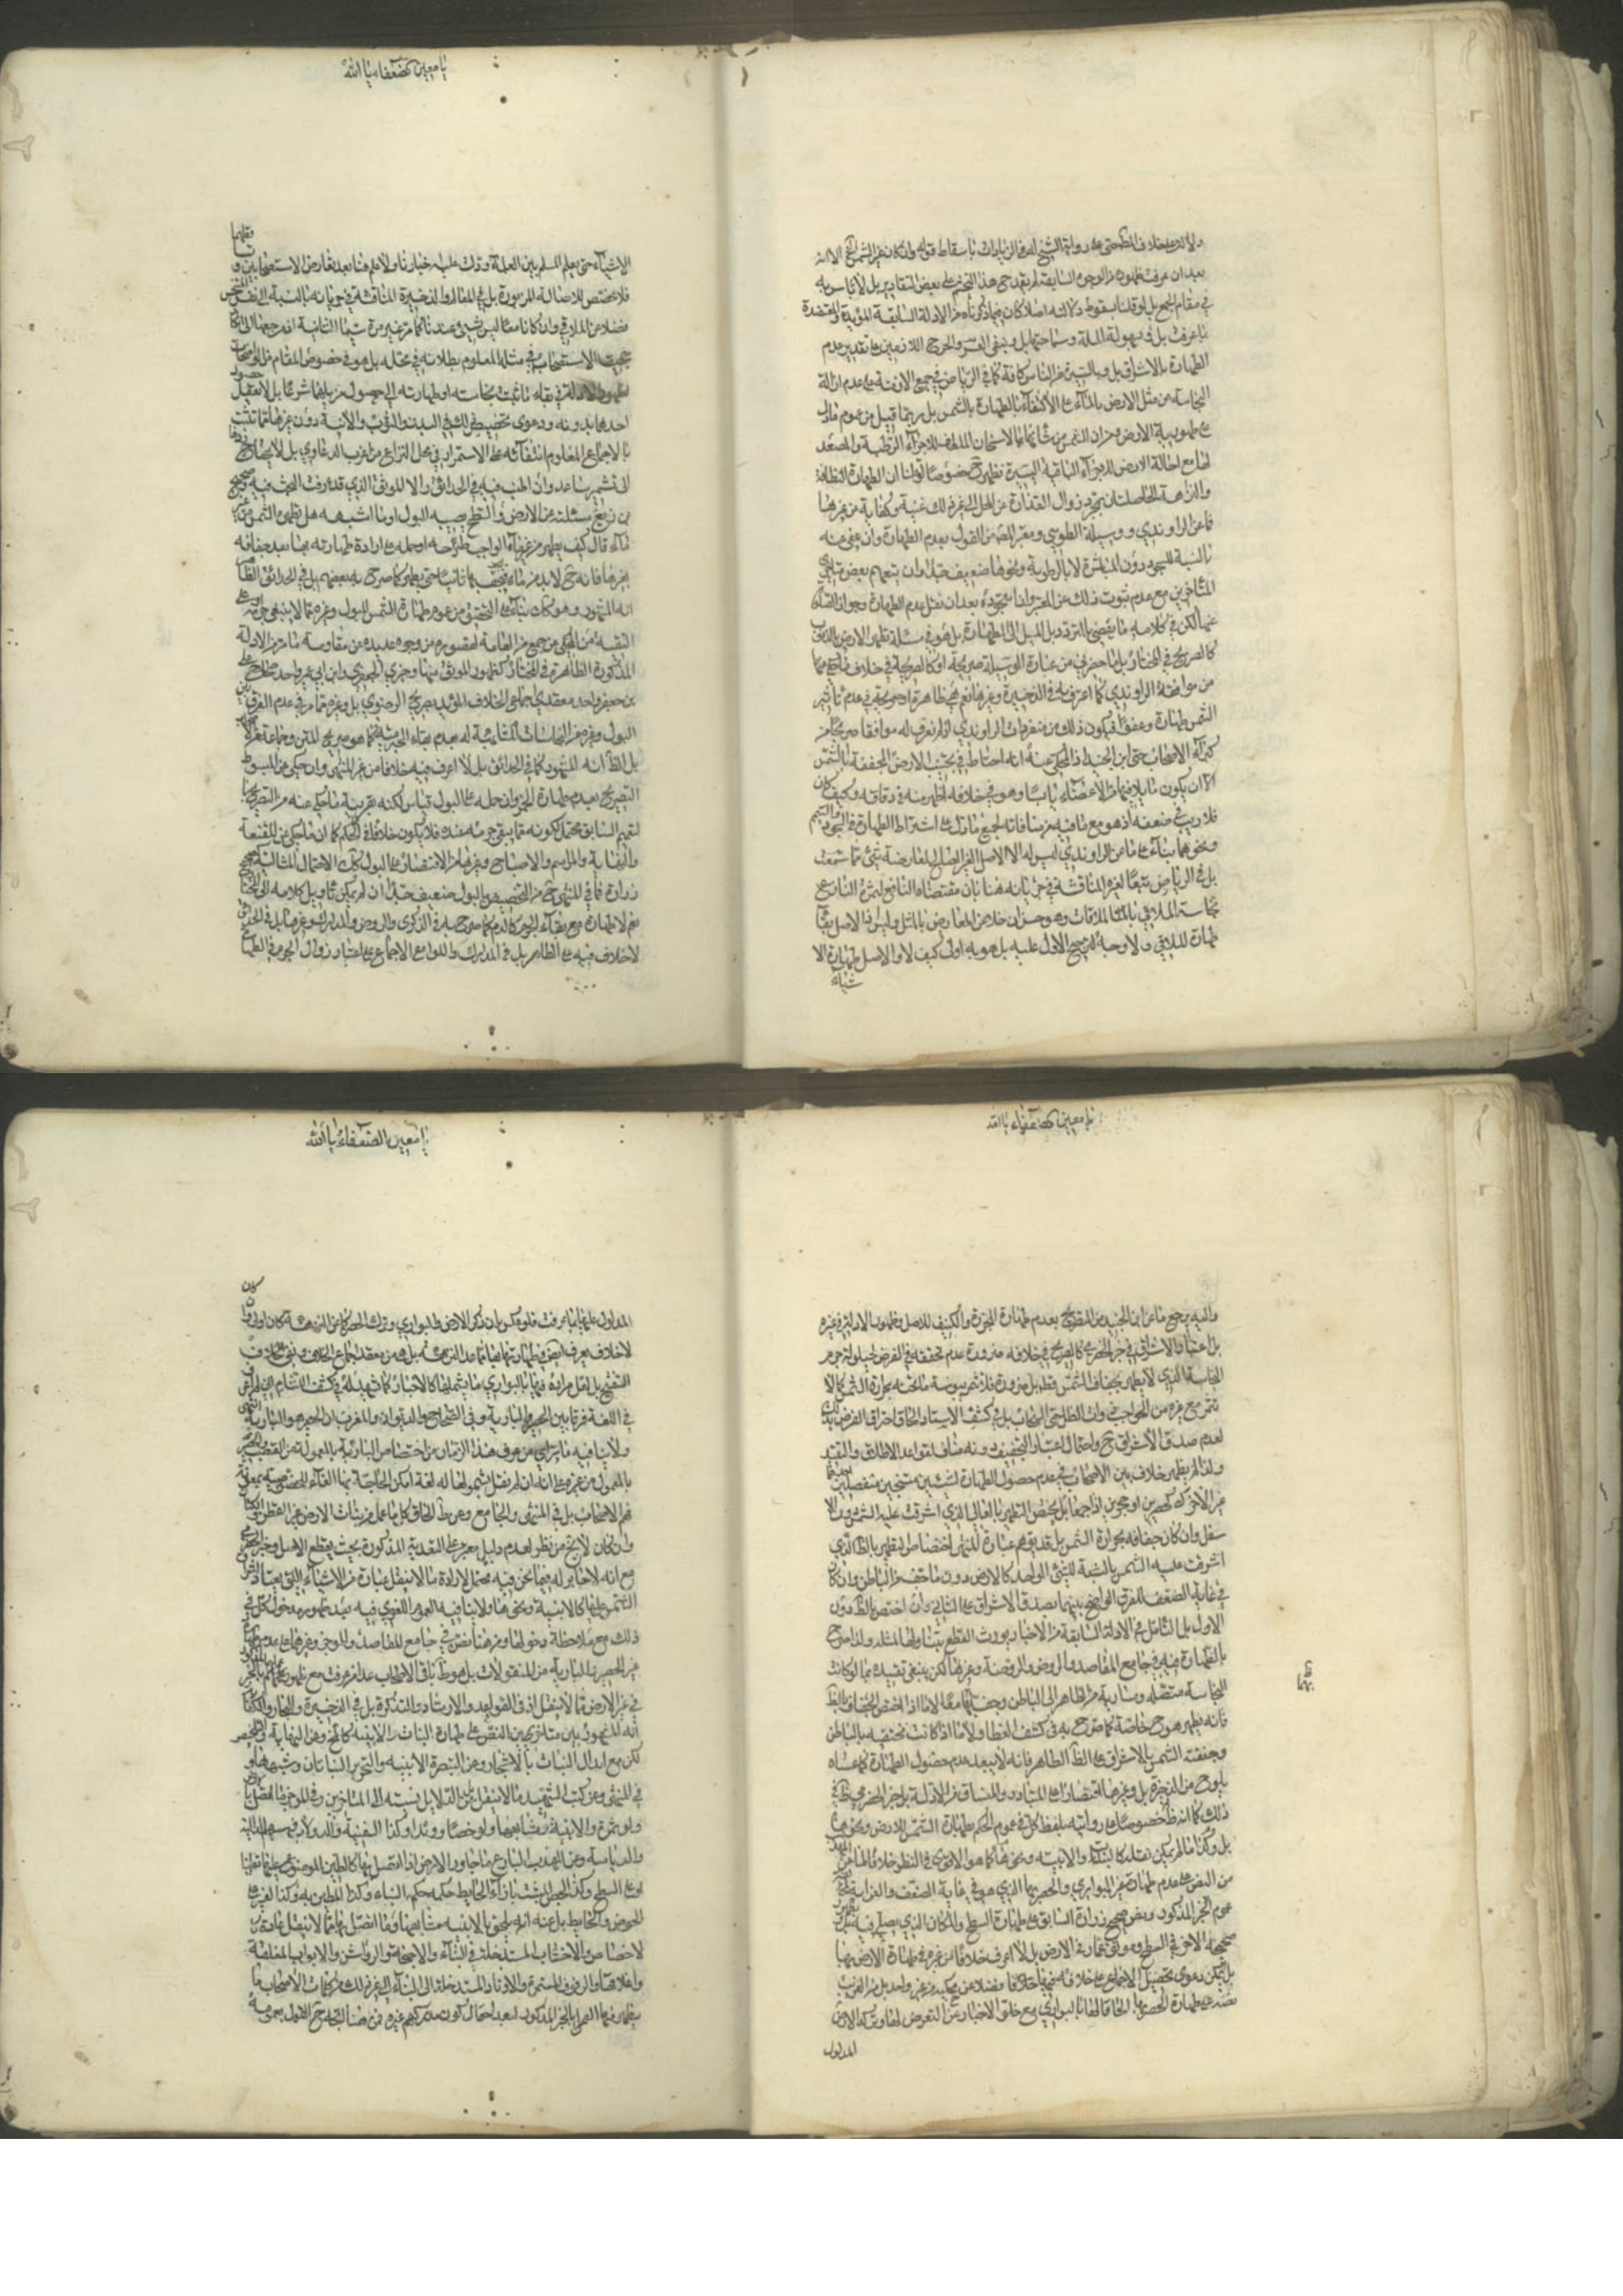 ولا الدعليه خلاف المط حتى على رواية الشيخ له في الزيادات باسقاط قوله وان كان غير الشمس الخ الا انه
بعد ان عرفت ظهوره من الوجوه السابقة لم يقدح هذا التجشم على بعض التقادير بل لا باس به
في مقام الجمع بل لو قلنا بسقوط دلالته اصلا كان فيما ذكرناه من الادلة السابقة المؤيدة والمعتضدة
بما عرفت بل في سهولة الملة وسماحتها بل وبنفي العسر والحرج اللازمين على تقدير عدم
الطهارة بالاشراق بل وبالسيرة من الناس كافة كما في الرياض في جميع الازمنة على عدم ازالة
النجاسة من مثل الارض بالماء على الاكتفاء بالطهارة بالشمس بل ربما قيل من عموم ما دل
على طهورية الارض ومن ان الشمس من شانها الاسخان الملطف للاجزاء الرطبة والمصعد
لها مع احالة الارض للاجزاء الباقية اليسيرة فتطهر ح خصوصا لو قلنا ان الطهارة النظافة
والنزاهة الحاصلتان بمجرد زوال القذارة عن المحل الى غير ذلك غنية وكفاية عن غيرها
فما عن الراوندي ووسيلة الطوسي ومعتبر المصنف من القول بعدم الطهارة وان عفي عنه
بالنسبة للسجود دون المباشرة لا بالرطوبة ونحوها ضعيف جدا وان تبعهم بعض متاخري
المتاخرين مع عدم ثبوت ذلك عن المعتبر وانما جوده بعد ان نقل عدم الطهارة وجواز الصلاة
عنهما لكن في كلامه ما يقضي بالتردد بل الميل الى الطهارة بل هو في مسئلة تطهير الارض بالذنوب
كالصريح في المختار بل ما حضرني من عبارة الوسيلة صريحة او كالصريحة في خلاف ما حكي عنها
من موافقة الراوندي كما اعترف به في الذخيرة وغيرها نعم هي ظاهرة او صريحة في عدم تاثير
الشمس طهارة وعفوا فيكون ذلك من متفردات الراوندي اذ لم نعرف له موافقا صريحا من
كبراء الاصحاب حتى ابن الجنيد اذ المحكي عنه انه احتاط في تجنب الارض المجففة بالشمس
الا ان يكون ما يلاقيها من الاعضاء يابسا وهو في خلافه اظهر منه في وفاقه وكيف كان
فلا ريب في ضعفه اذ هو مع ما فيه من منافاته لجميع ما دل على اشتراط الطهارة في السجود والتيمم
ونحوهما بناء على ما عن الراوندي ليس له الا الاصل الغير الصالح للمعارضة بشئ مما سمعت
بل في الرياض تبعا لغيره المناقشة في جريانه هنا بان مقتضاه النافع لثمرة النزاع
نجاسة الملاقي بالملاقات وهو حسن ان خلا عن المعارض بالمثل وليس فان الاصل بقاء
طهارة الملاقي ولا وجه لترجيح الاول عليه بل هو به اولى كيف لا والاصل طهارة الا
شياء
يا معين الضعفاء يا الله
الاشياء حتى يعلم المسلم بين العلماء ودلت عليه اخبارنا ولا علم هنا بعد تعارض الاستصحابين وتساقطهما
فلا تختص الاصالة المزبورة بل في المعالم والذخيرة المناقشة في جريانه بالنسبة الى نفس النجس
فضلا عن الملاقي وان كانا معا ليس بشئ عندنا كما مر غير مرة سيما الثانية اذ مرجعها الى انكار
حجية الاستصحاب في مثله المعلوم بطلانه في محله بل هو في خصوص المقام من الواضحات
لظهور الادلة في بقاء ما ثبت نجاسته او طهارته الى حصول مزيلهما شرعا بل لا يعقل حصول
احدهما بدونه ودعوى تخصيص ذلك في البدن والثوب والانية دون غيرها مما تثبت
بالاجماع المعلوم انتفائه على الاستمرار في محل النزاع من اغرب الدعاوي بل لا يحتاج ردها
الى تشمير ساعد وان اطنب فيه في الحدائق والا الموثق الذي قد عرفت البحث فيه وصحيح
بن بزيع سئلته عن الارض والسطح يصيبه البول او ما اشبهه هل تطهره الشمس من غير
ماء قال كيف يطهر من غير ماء الواجب طرحه او حمله على ارادة طهارته بها بعد جفافه
بغيرها فانه ح لا بد من ماء فتجففها ثانيا حتى يطهر كما صرح به بعضهم بل في الحدائق الظاهر
انه المشهور وهو كان بناء على التحقيق من عموم طهارة الشمس للبول وغيره مما لا ينبغي جرمه او على
التقية من المحكي عن جمع من العامة لقصوره من وجوه عديدة عن مقاومة ما مر من الادلة
المذكورة الظاهرة في المختار كظهور الموثق منها وخبري الحضرمي وابن ابي عمير واحد صحاح علي
بن جعفر واحد معقدي اجماعي الخلاف المؤيد بصريح الرضوي بل وغيره مما مر في عدم الفرق بين
البول وغيره من النجاسات المشابهة له بعدم بقاء الجرمية كما هو صريح المتن وجماعة غيره
بل الظ انه المشهور كما في الحدائق بل لا اعرف فيه خلافا من غير المنتهى وان حكي عن المبسوط
التصريح بعدم طهارة الخمر وان حمله على البول قياس لكنه بقرينة ما حكي عنه من التصريح بالتعميم السابق
محتمل لكونه مما يبقى جرمه عنده فلا يكون خلافا في الحكم كما ان ما حكي عن المقنعة
والنهاية والمراسم والاصباح وغيرها من الاقتصار على البول كك الاحتمال المثالية كصحيح
زرارة فما في المنتهى ح من التخصيص بالبول ضعيف جدا ان لم يمكن تاويل كلامه الى المختار
نعم لا طهارة مع بقاء الجرم كالدم كما صرح به في الذكرى والروض والمدارك وغيرها بل في الحدائق
لا خلاف فيه على الظاهر بل في المدارك واللوامع الاجماع على اعتبار زوال الجرم في الطهارة
يا معين الضعفاء يا الله
واليه يرجع ما عن ابن الجنيد من التصريح بعدم طهارة المجزرة والكنيف للاصل وظهور الادلة في غيره
بل اعتبار الاشراق في خبر الحضرمي كالصريح في خلافه ضرورة عدم تحققه في الفرض لحيلولة جرم
النجاسة الذي لا يطهر بجفاف الشمس قطعا بل ضرورة فلا تثمر يبوسة ما تحته بحرارة الشمس كما لا
تثمر مع غيره من الحواجب ذوات الظل حتى السحاب بل في كشف الاستاد الحاق احتراق القرص بذلك
لعدم صدق الاشراق ح واحتمال اعتبار التجفيف ونه مناف لقواعد الاطلاق والتقييد
ولذا لم يظهر خلاف بين الاصحاب في عدم حصول الطهارة لشيئين متنجسين منفصلين
عن الاخر كحصيرين او حجرين اذا جمعا بل يختص التطهير بالعالي الذي اشرقت عليه الشمس دون الا
سفل وان كان جفافه بحرارة الشمس بل قد يوهم عبارة المنتهى اختصاص التطهير بالظ الذي
اشرقت عليه الشمس بالنسبة للشئ الواحد كالارض دون ما تجفف من الباطن وان كان
في غاية الضعف للفرق الواضح بينهما بصدق الاشراق على الثاني وان اختص بالظ دون
الاول بل التامل في الادلة السابقة من الاخبار يورث القطع بتناولها لمثله ولذا صرح
بالطهارة فيه في جامع المقاصد والروض والروضة وغيرها لكن ينبغي تقييده بما لو كانت
النجاسة متصلة وسارية من الظاهر الى الباطن وجف بها معا لا ما اذا اختص الجفاف بالظ
فانه يطهر هو ح خاصة كما صرح به في كشف الغطاء ولا ما اذا كانت مختصة بالباطن
وجففته الشمس بالاشراق على الظ الطاهر فانه لا يبعد عدم حصول الطهارة كما عساه
يلوح من الذخيرة بل وغيرها اقتصارا على المتبادر والمنساق من الادلة بل خبر الحضرمي ظ في
ذلك كما انه ظ خصوصا على روايته بلفظ كل في عموم الحكم بطهارة الشمس للارض ونحوها
بل وكل ما لم يمكن نقله كالنبات والابنية ونحوها كما هو الاقوى في النظر خلافا لما عن المهذب
من النص على عدم طهارة غير البواري والحصر بها الذي هو في غاية الضعف والغرابة مخالفته
عموم الخبر المذكور ونص صحيح زرارة السابق على طهارة السطح والمكان الذي يصلى فيه بل و
صحيحه الاخر في السطح وموثق عمار في الارض بل لا اعرف خلافا من غيره في طهارة الارض بها
بل يمكن دعوى تحصيل الاجماع على خلافه فيها خلافا فضلا عن محكيه من غير واحد بل من الغريب
نصه على طهارة الحصر بها الحاقا لها بالبواري مع خلو الاخبار عن التعرض لها وتركه الارض
المدلول
يا معين الضعفاء يا الله
المدلول عليها بما عرفت فلو عكس بان ذكر الارض والبواري وترك الحصر كما عن النزهة كان اولى وان كان
لا خلاف يعرف ايض في طهارتها بها مما عدا النزهة بل هي من معقد اجماع الخلاف ونفي خلاف
التنقيح بل لعل مراده فيها بالبواري ما يشملها كالاخبار كما شهد له في كشف اللثام انه لم اعرف
في اللغة فرقا بين الحصير والبارية وفي الصحاح والديوان والمغرب ان الحصير هو البارية انتهى
ولا ينافيه ما يترائى من عرف هذا الزمان من اختصاص البارية بالمعمولة من القصب والحصير
بالمعمول من غيره على انه ان لم نقل بشمولها له لغة امكن الحاقه بها الغاء للخصوصية بمعونة
فهم الاصحاب بل في المنتهى والجامع وعن ط الحاق كل ما عمل من نبات الارض غير القطن والكتان
وان كان لا يخ من نظر لعدم دليل معتبر على التعدية المذكورة بحيث يقطع الاصل وخبر الحضرمي
مع انه لا جابر له فيما نحن فيه محتمل لارادة ما لا ينقل عبارة من الاشياء التي يعتاد اشراق
الشمس عليها كالابنية ونحوها ولا ينافيه العموم اللغوي فيه بعد ظهور مدخول كل في
ذلك مع ملاحظة دخولها ومن هنا نص في جامع المقاصد والموجز وغيرهما على عدم طهارة
غير الحصير والبارية من المنقولات بل هو ظ باقي الاصحاب عدا من عرفت مع ظهور عملهم بالخبر
في غير الارض مما لا ينقل اذ في القواعد والارشاد والتذكرة بل في الذخيرة والبحار والكفاية
انه المشهور بين متاخريهم النص على طهارة النبات والابنية كما في وعن النهاية والتحرير
لكن مع ابدال النبات بالاشجار وعن التبصرة الابنية والتحرير النباتات وشبهها و
في المنتهى وعن كتب الشهيد ما لا ينقل وعن الدلائل نسبته الى المتاخرين وفي الموجز ما اتصل بالارض
ولو ثمرة والابنية ومشابهها ولو خصا ووتدا وكذا السفينة والدولاب وسهم الدالية
والدياسة وعن المهذب البارع ما جاور الارض اذا اتصل بها كالطين الموضوع عليها سواء
او على السطح وكذا الجص المثبت بازاء الحايط حكمه حكم البناء وكذا المطين به وكذا القير على
الحوض والحايط بل عنه انه يلحق بالابنية مشابهها وما اتصل بها مما لا ينقل عادة
كالاخصاص والاخشاب المستدخلة في البناء والاجنحة والرواشن والابواب المغلقة
واغلاقها والرفوف المسمرة والاوتاد المستدخلة الى البناء الى غير ذلك من كلمات الاصحاب مما
يظهر منها العمل بالخبر المذكور لبعد احتمال كون مدركهم غيره فمن هنا اتجه ح القول بعموم